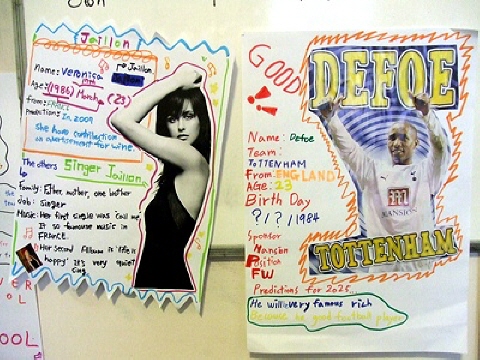 Jaillon
Name: Veronica Jaillon
Age: (1986) March (23)
From: FRANCE
In 2009
She have contribution
an advertisment for wine.
The others Singer Jaillon
Family: Father, mother, one brother
Job: Singer
Music: Her first single was Call me
It so famouse music in
FRANCE.
Her Second Album is "life is
happy" it's very quiet
GOOD
!!
DEFOE
Name: Defoe
Team:
TOTTENHAM
From: ENGLAND
Age: 23
Birth Day
?/?/1984
Sponsor
Mansion
Position
FW
MANSION
TOTTENHAM
Predictions for 2025..
He will very famous rich
Because he good football player
OOL